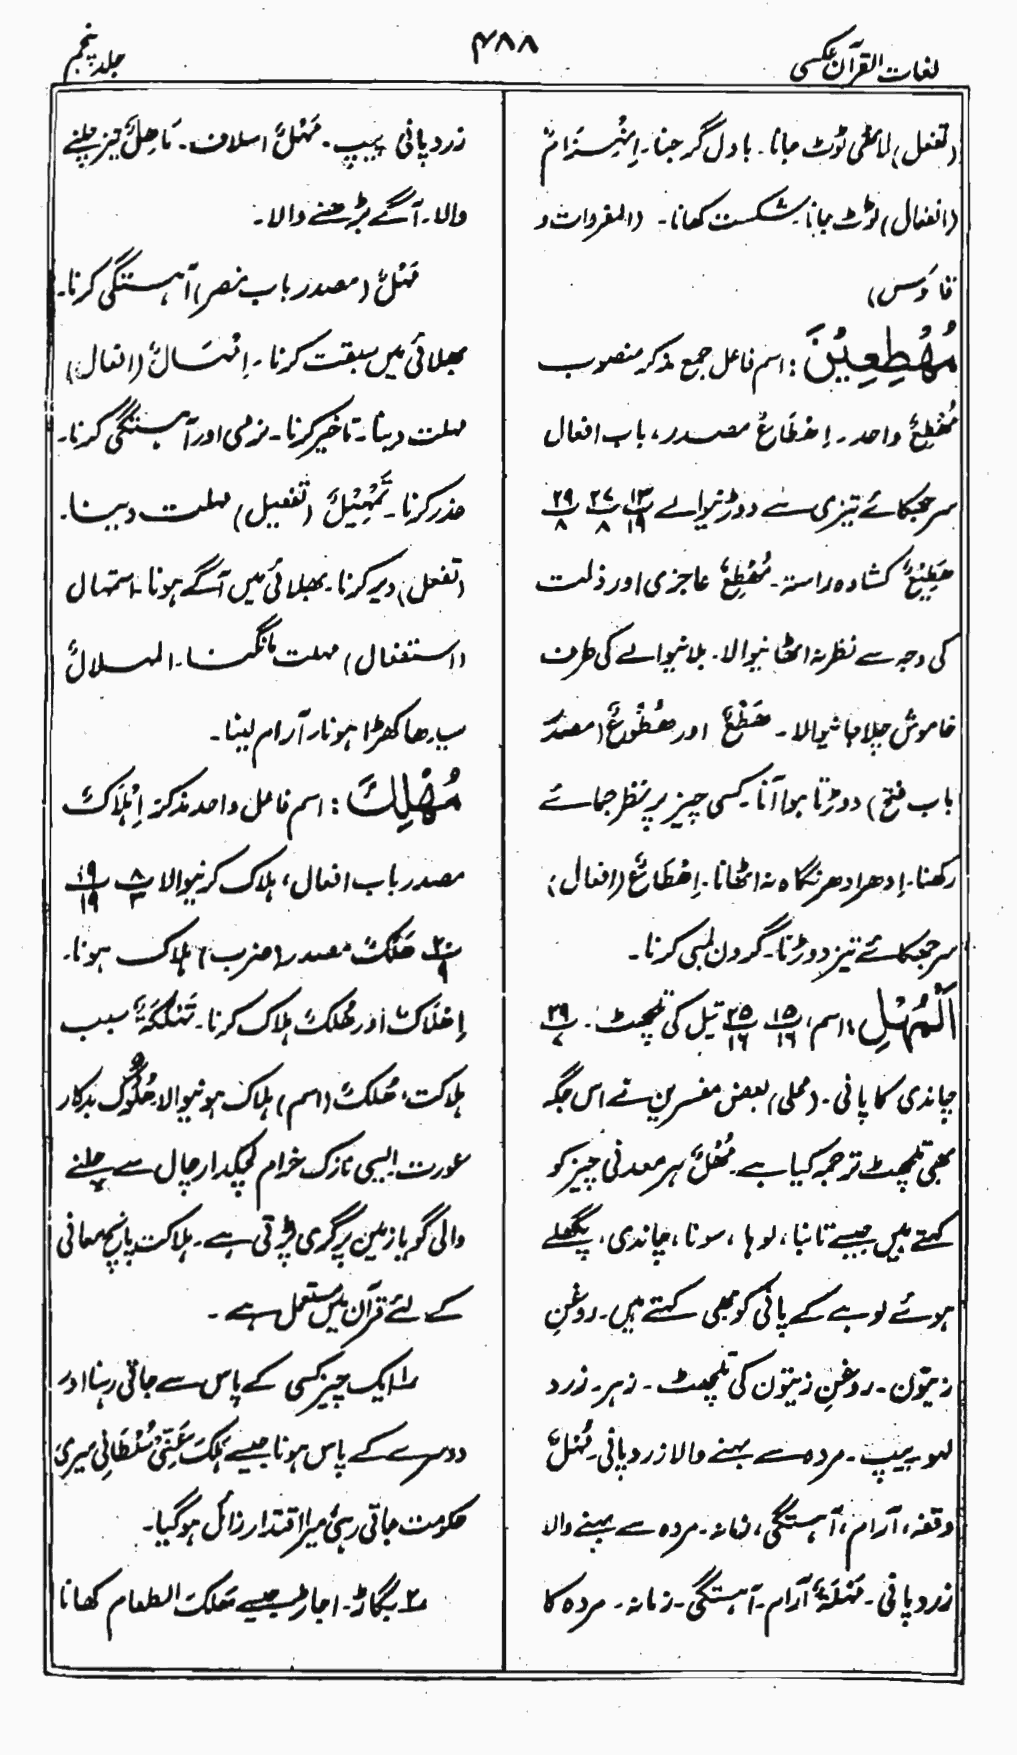 لغات القرآن عکسی
۴۸۸
جلد پنجم
(تفعل) لاٹھی ٹوٹ جانا۔ بادل گرجنا۔ اِنْہِزَامٌ
(انفعال) ٹوٹ جانا۔ شکست کھانا۔ (المفردات و
قاموس)
مُهْطِعِيْنَ: اسم فاعل جمع مذکر منصوب
مُهْطِعٌ واحد۔ اِهْطَاعٌ مصدر، باب افعال
سر جھکائے تیزی سے دوڑنیوالے ۱۳/۱۹ ۲۷/۸ ۲۹/۸
هَطِيْعٌ کشادہ راستہ۔ مُهْطِعٌ عاجزی اور ذلت
کی وجہ سے نظر نہ اٹھانیوالا۔ بلانیوالے کی طرف
خاموش چلا جانیوالا۔ هَطْعٌ اور هُطُوْعٌ (مصدر
باب فتح) دوڑتا ہوا آنا۔ کسی چیز پر نظر جمائے
رکھنا۔ اِدھر ادھر نگاہ نہ اٹھانا۔ اِهْطَاعٌ (افعال)
سر جھکائے تیز دوڑنا۔ گردن لمبی کرنا۔
اَلْمُهْلِ: اسم، ۱۵/۱۶ ۲۵/۱۶ تیل کی تلچھٹ۔ ۲۹/۷
چاندی کا پانی۔ (محلی) بعض مفسرین نے اس جگہ
بھی تلچھٹ ترجمہ کیا ہے۔ مُهْلٌ ہر معدنی چیز کو
کہتے ہیں جیسے تانبا، لوہا، سونا، چاندی، پگھلے
ہوئے لوہے کے پانی کو بھی کہتے ہیں۔ روغنِ
زیتون۔ روغنِ زیتون کی تلچھٹ۔ زہر۔ زرد
لہو۔ پیپ۔ مردہ سے بہنے والا زرد پانی۔ مُهْلٌ
وقفہ، آرام، آہستگی، زمانہ۔ مردہ سے بہنے والا
زرد پانی۔ مُهْلَةٌ آرام۔ آہستگی۔ زمانہ۔ مردہ کا
زرد پانی پیپ۔ مَهْلٌ اسلاف۔ مَاهِلٌ تیز چلنے
والا۔ آگے بڑھنے والا۔
مَهْلٌ (مصدر باب نصر) آہستگی کرنا۔
بھلائی میں سبقت کرنا۔ اِمْهَالٌ (افعال)
مہلت دینا۔ تاخیر کرنا۔ نرمی اور آہستگی کرنا۔
عذر کرنا۔ تَمْهِيْلٌ (تفعیل) مہلت دینا۔
(تفعل) دیر کرنا۔ بھلائی میں آگے ہونا۔ استمہال
(استفعال) مہلت مانگنا۔ المہلالٌ
سیدھا کھڑا ہونا۔ آرام لینا۔
مُهْلِكَ: اسم فاعل واحد مذکر اِهْلَاكٌ
مصدر باب افعال، ہلاک کرنیوالا ۸/۳ ۱۹/۱۹
۲۰/۹ هَلْكٌ مصدر (ضرب) ہلاک ہونا۔
اِهْلَاكٌ اور هُلْكٌ ہلاک کرنا۔ تَهْلُكَةٌ سبب
ہلاکت، هُلْكٌ (اسم) ہلاک ہونیوالا۔ هُلُوْكٌ بدکار
عورت ایسی نازک خرام لچکدار چال سے چلنے
والی گویا زمین پر گری پڑتی ہے۔ ہلاکت پانچ معانی
کے لئے قرآن میں مستعمل ہے۔
۱۔ ایک چیز کسی کے پاس سے جاتی رہنا اور
دوسرے کے پاس ہونا جیسے هَلَكَ عَنِّيْ سُلْطَانِيْ میری
حکومت جاتی رہی، میرا اقتدار زائل ہوگیا۔
۲۔ بگاڑ۔ اجاڑ جیسے هَلَكَ الطعام کھانا